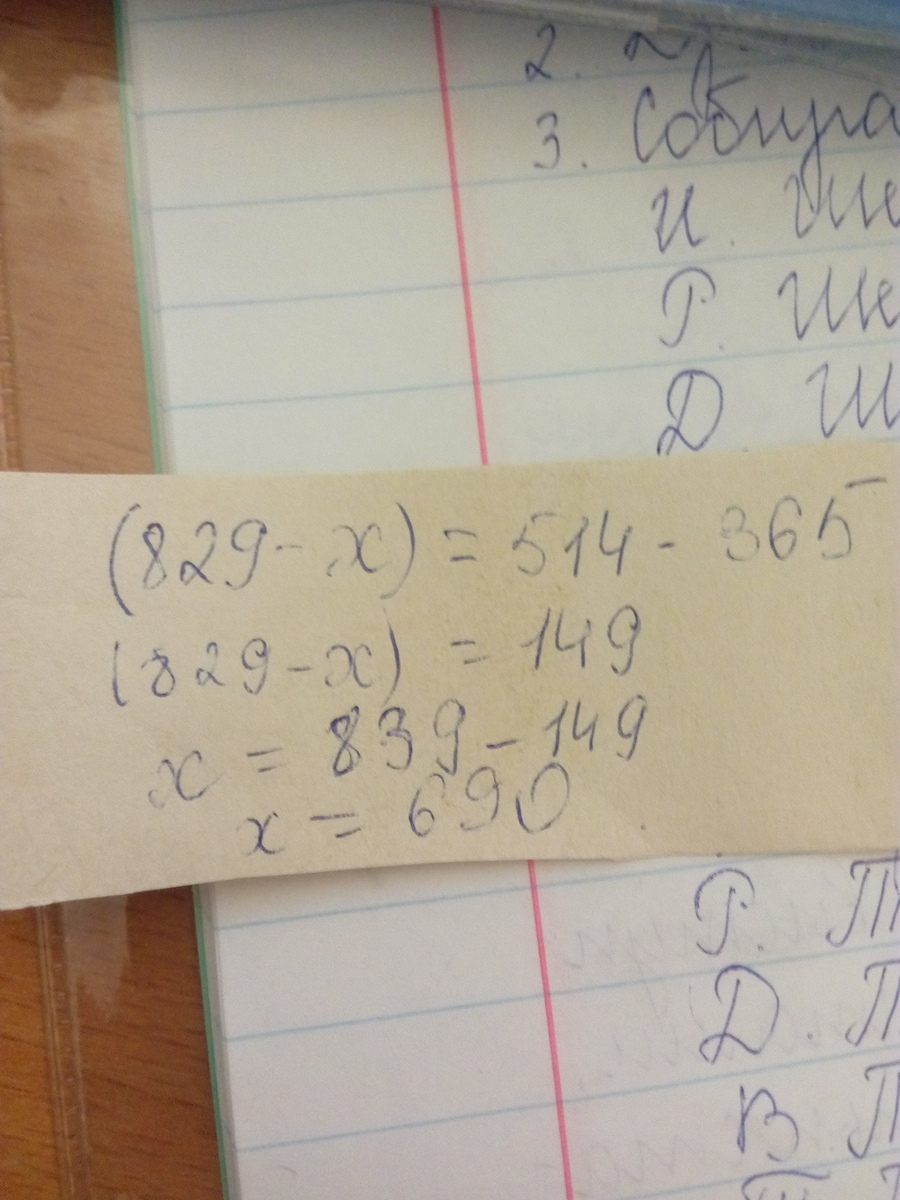 2.
3. Собира
И. Ше
Р. Ше
Д Ш
(829 - x) = 514 - 365
(829 - x) = 149
x = 839 - 149
x = 690
Р. П
Д. П
В П